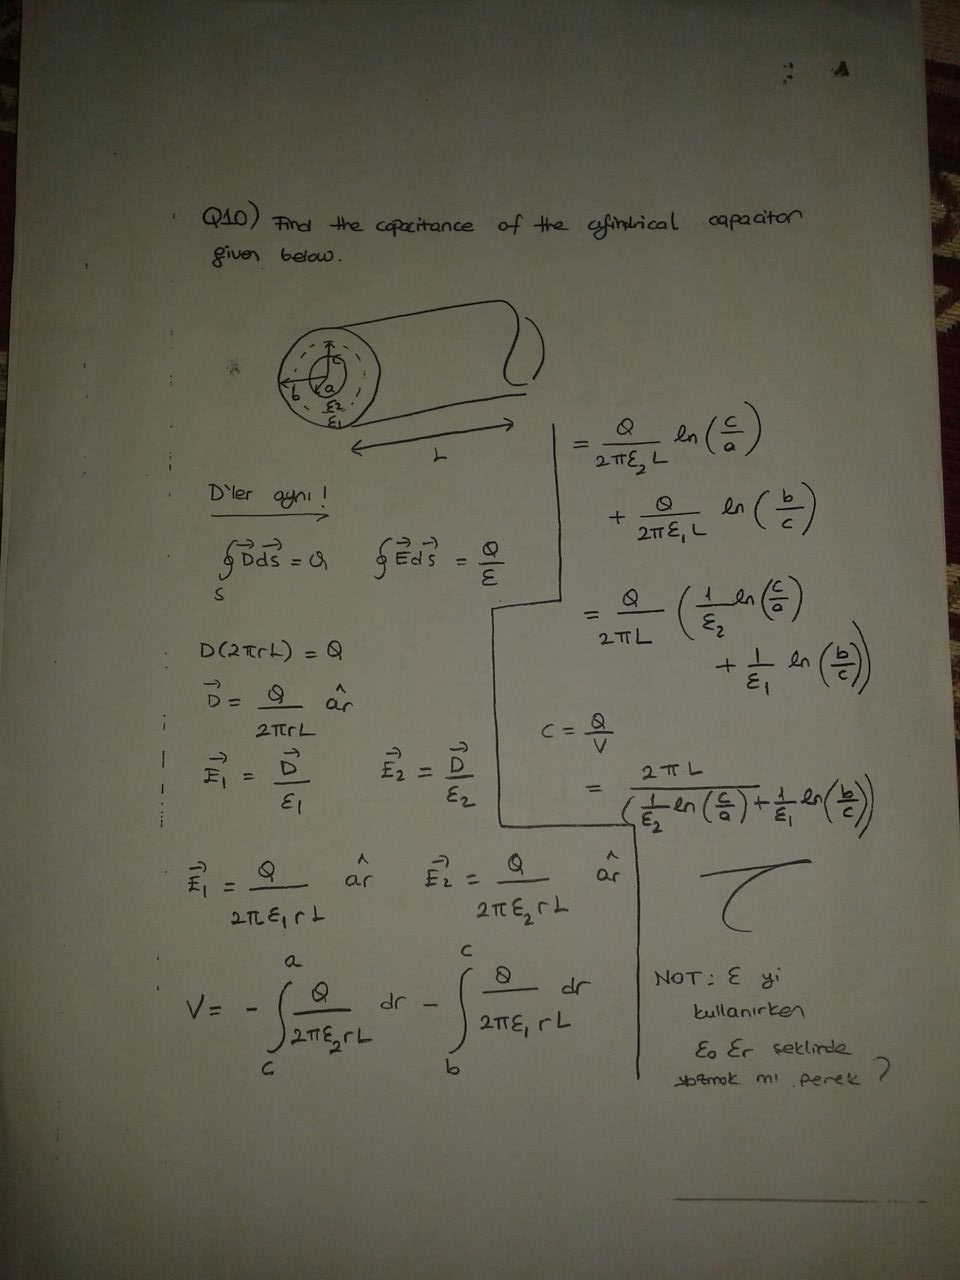 Q10) Find the capacitance of the cylindrical capacitor
given below.
c
b
a
ε2
ε1
L
D'ler aynı!
∮S D⃗ ds⃗ = Q    ∮ E⃗ ds⃗ = Q/ε
D(2πrL) = Q
D⃗ = Q/(2πrL) âr
E⃗1 = D⃗/ε1    E⃗2 = D⃗/ε2
E⃗1 = Q/(2πε1rL) âr    E⃗2 = Q/(2πε2rL) âr
V = - ∫_c^a Q/(2πε2rL) dr - ∫_b^c Q/(2πε1rL) dr
= Q/(2πε2L) ln(c/a)
+ Q/(2πε1L) ln(b/c)
= Q/(2πL) (1/ε2 ln(c/a)
+ 1/ε1 ln(b/c))
C = Q/V
= 2πL/(1/ε2 ln(c/a) + 1/ε1 ln(b/c))
NOT: ε yi
kullanırken
ε0 εr şeklinde
yazmak mı gerek?